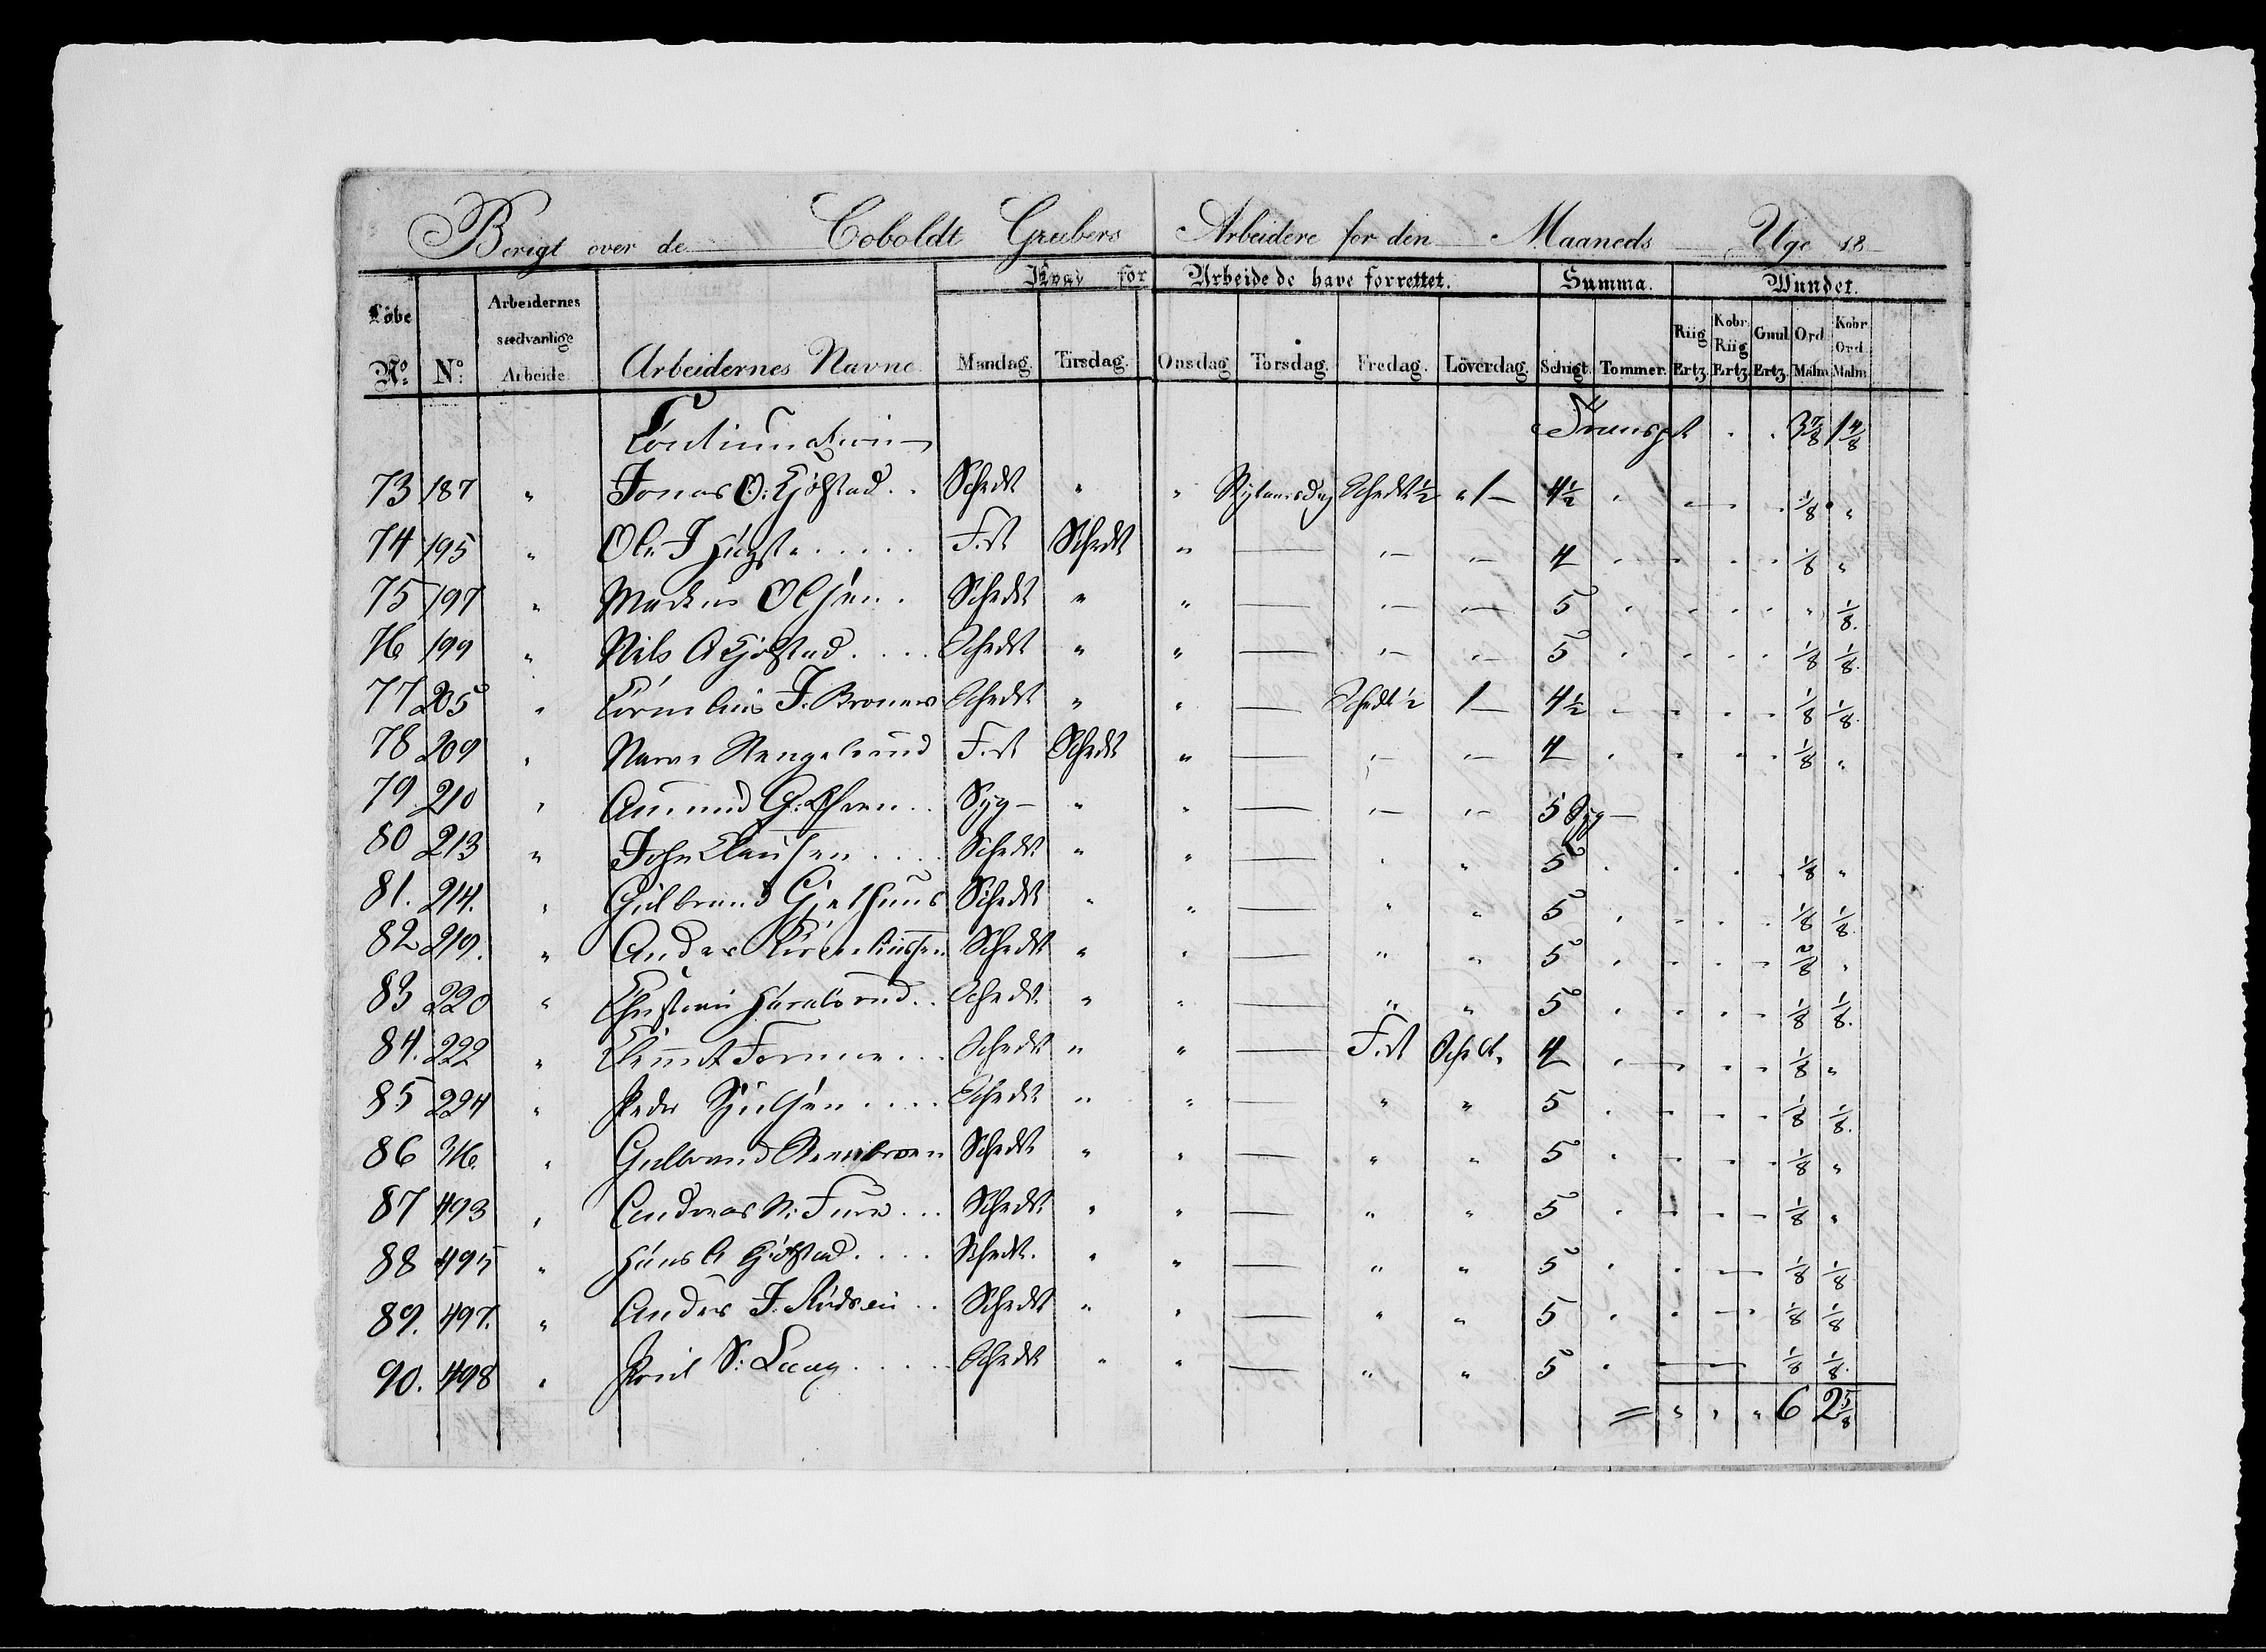 Berigt over de Coboldt Grubers Arbeidere for den Maaneds Uge 18
Hvad for Arbeide de have forrettet. Summa. Wundet.
Löbe No. No. Arbeidernes sædvanlige Arbeide Arbeidernes Navne Mandag. Tirsdag. Onsdag Torsdag. Fredag. Löverdag. Schigt. Tommer. Riig Ertz. Kobr. Riig Ertz. Gnul Ertz. Ord Malm Kobr Ord. Malm
Continuation Transpt . . 3 7/8 1 4/8
73 187 " Jonas O: Schedt " " Schedt 1/2 " 1 — 4 1/2 " 1/8 "
74 195 " Ole J . . . . . F.st Schedt " — "— "— 4 1/8 "
75 197 " Markus Olsen . Schedt " " — "— "— 5 " 1/8
76 199 " Nils A . . . . Schedt " " — "— "— 5 1/8 1/8
77 205 " Cornelius J. Schedt " " — Schedt 1/2 1 — 4 1/2 1/8 1/8
78 209 " F.st Schedt " — "— "— 4 1/8 "
79 210 " Amund G: . . Syg — " " — "— "— 5 Syg —
80 213 " John Clausen . . . . Schedt " " — " " 5 1/8 "
81. 214. " Gulbrand Schedt " " — " " 5 1/8 1/8
82 219. " Anders Schedt " " — " " 5 2/8 "
83 220 " Christian . . Schedt " " — " " 5 1/8 1/8
84. 222 " . . . Schedt " " — F.st Schedt 4 1/8 "
85 224 " Peder . . . . Schedt " " — " " 5 1/8 1/8
86 " Gulbrand Schedt " " — " " 5 1/8 "
87 493 " Andreas N: Furu . . . Schedt " " — " " 5 1/8 "
88 495 " Hans A . . . . Schedt " " — " " 5 1/8 1/8
89. 497. " Anders J. . . Schedt " " — " " 5 1/8 1/8
90. 498 " Poul S: Laag . . . . . Schedt " " — " " 5 1/8 1/8
= " " " 6 2 5/8